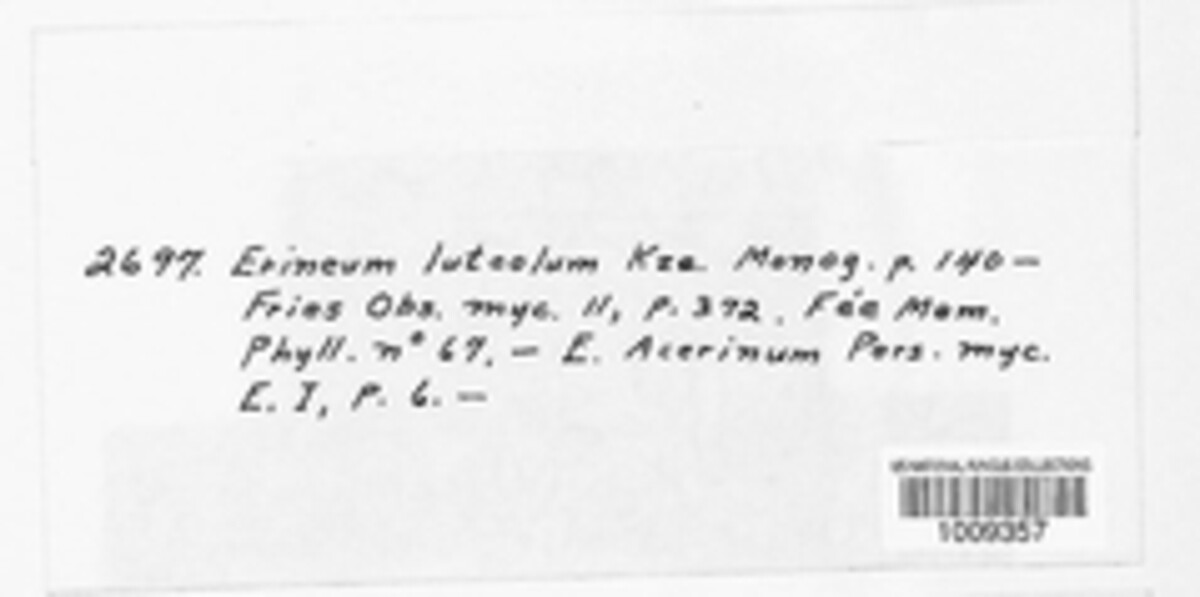 2697. Erineum luteolum Kze. Monog. p. 140 —
Fries Obs. myc. II, p. 372. Fée Mem.
Phyll. n° 67. — E. Acerinum Pers. myc.
E. I, P. 6. —
US NATIONAL FUNGUS COLLECTIONS
1009357